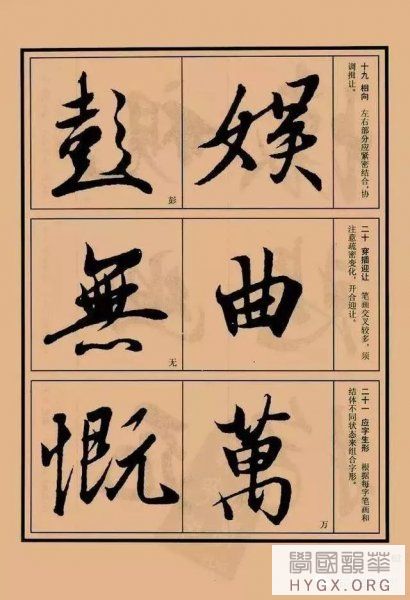 十九 相向 左右部分应紧密结合,协
调揖让。
娱
彭
彭
二十 穿插迎让 笔画交叉较多,须
注意疏密变化,开合迎让。
曲
無
无
二十一 应字生形 根据每字笔画和
结体不同状态来组合字形。
萬
万
慨
學國韻華
HYGX.ORG